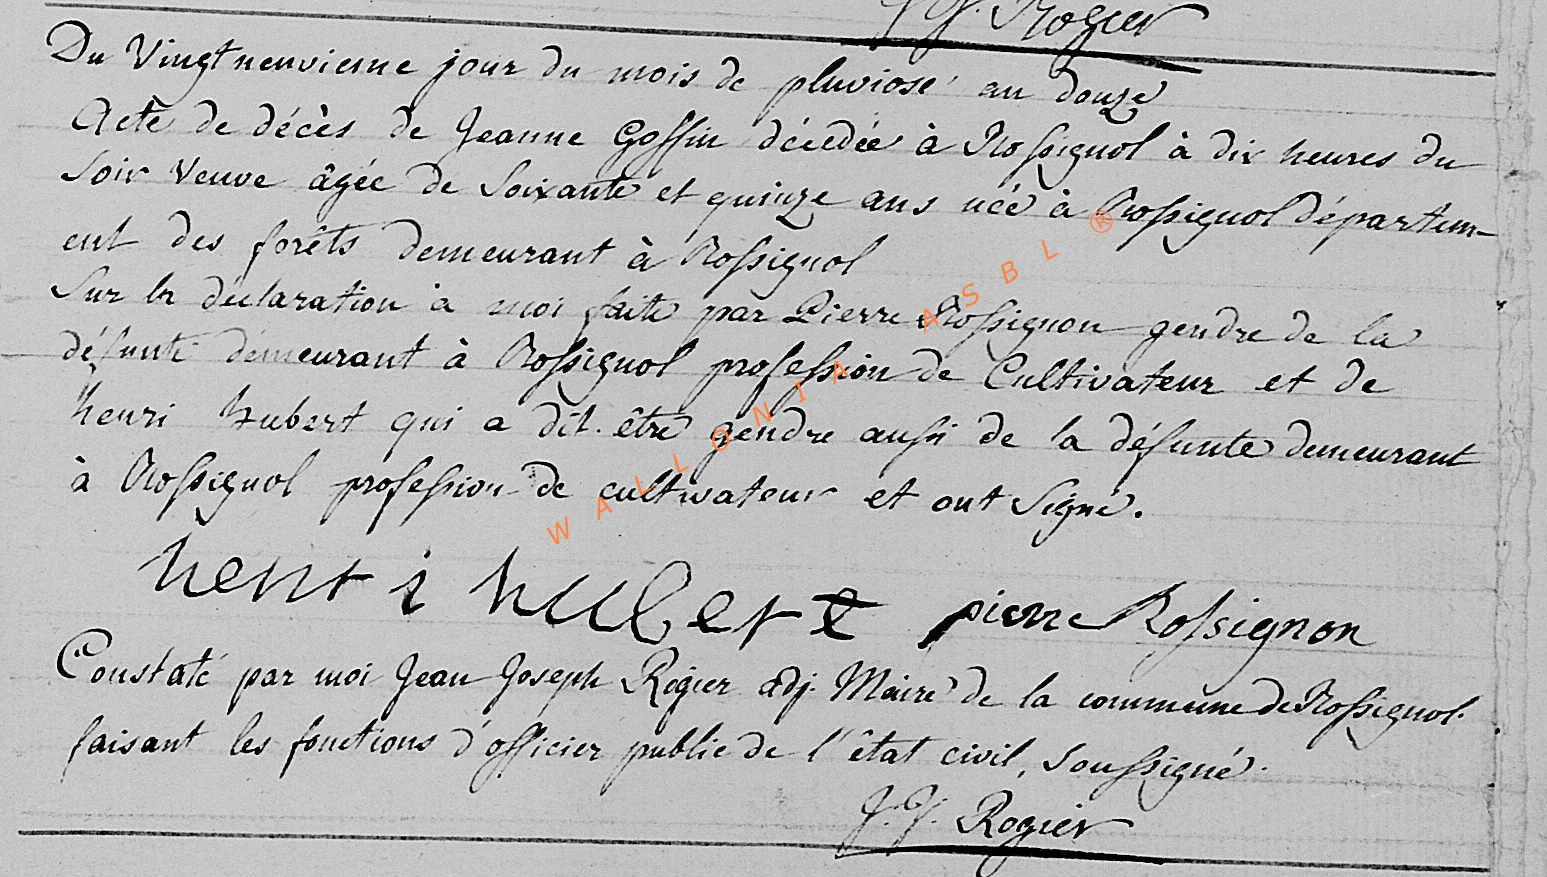 J. J. Rogier
Du Vingt neuvieme jour du mois de pluviose an douze
Acte de décès de Jeanne Goffin décédée à Rossignol à dix heures du
Soir Veuve âgée de Soixante et quinze ans née à Rossignol départem-
ent des forêts demeurant à Rossignol
Sur la declaration à moi faite par Pierre Rossignon gendre de la
défunte demeurant à Rossignol profession de Cultivateur et de
henri hubert qui a dit être gendre aussi de la défunte demeurant
à Rossignol profession de cultivateur et ont Signé.
henri hubert pierre Rossignon
Constaté par moi Jean Joseph Rogier adj. Maire de la commune de Rossignol.
faisant les fonctions d'officier public de l'état civil, soussigné.
J. J. Rogier
WALLONIA ASBL ®